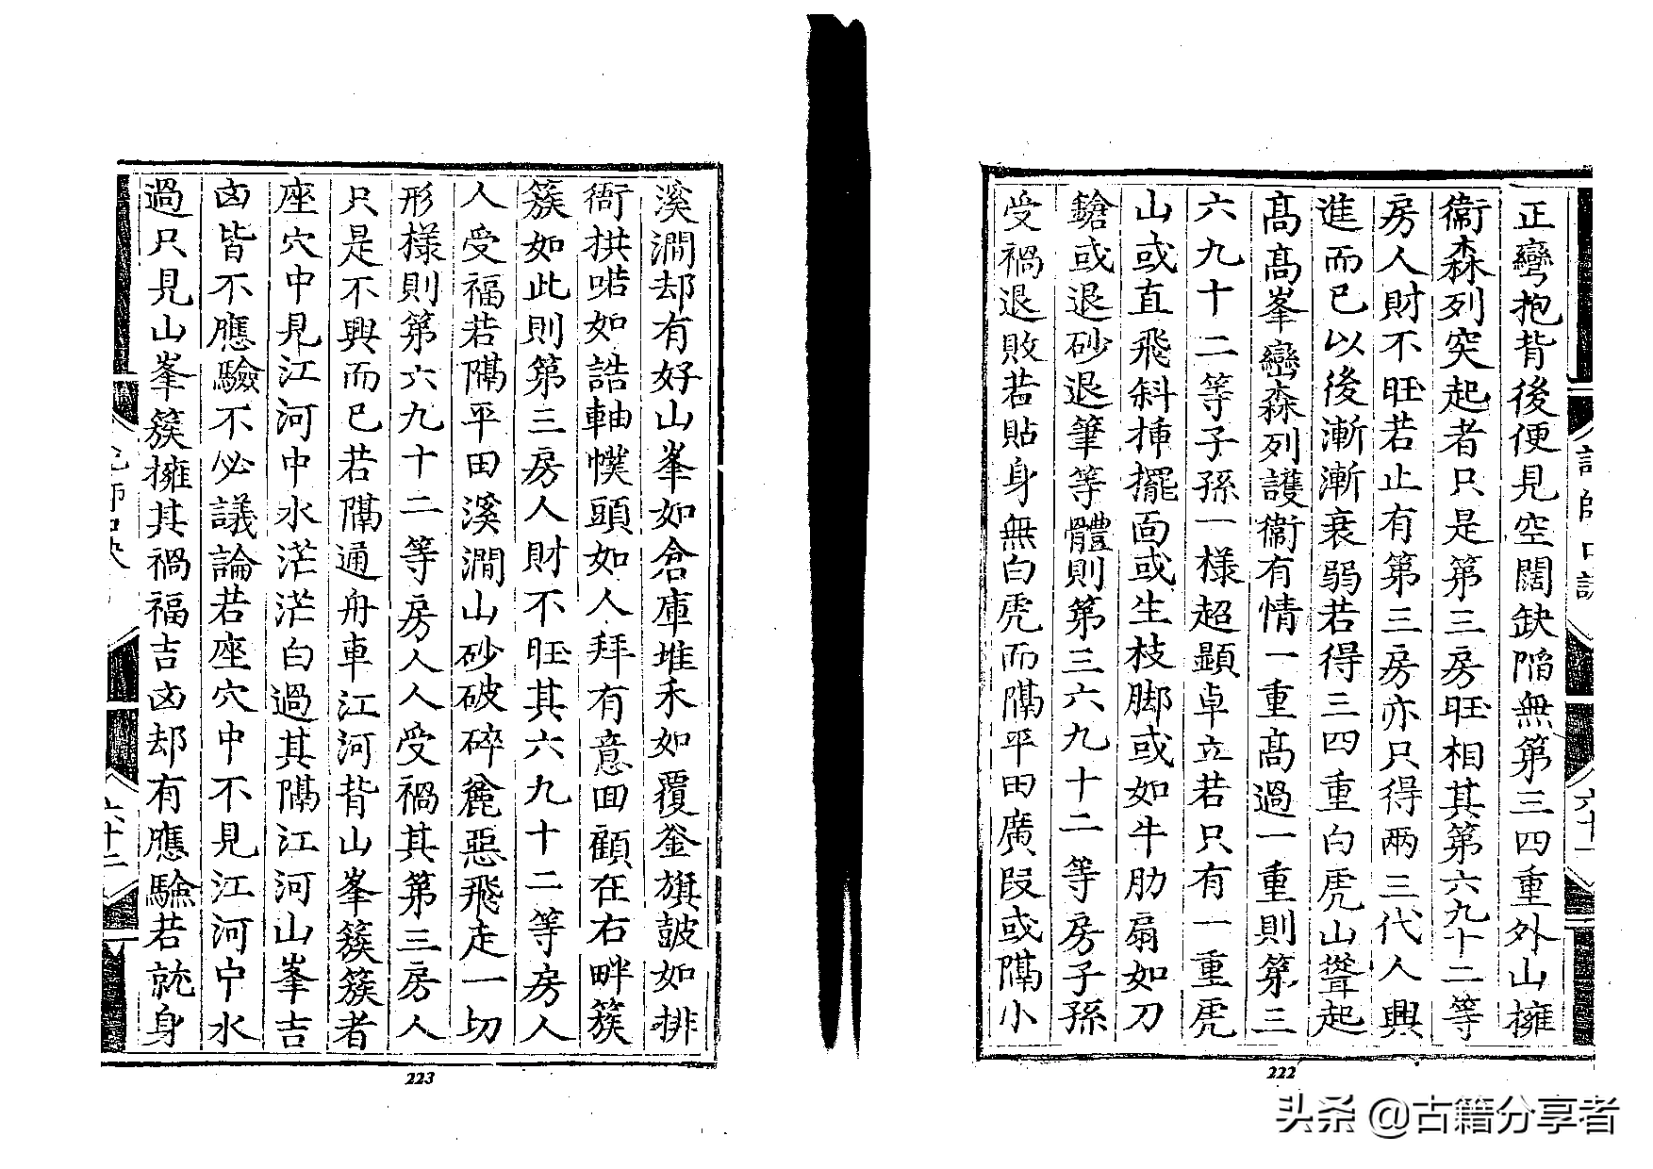 正彎抱背後便見空闊缺陷無第三四重外山擁
衞森列突起者只是第三房旺相其第六九十二等
房人財不旺若止有第三房亦只得兩三代人興
進而已以後漸漸衰弱若得三四重白虎山聳起
高高峯巒森列護衞有情一重高過一重則第三
六九十二等子孫一樣超顯卓立若只有一重虎
山或直飛斜揷擺面或生枝脚或如牛肋扇如刀
鎗或退砂退筆等體則第三六九十二等房子孫
受禍退敗若貼身無白虎而隔平田廣段或隔小
六十一
222
溪澗却有好山峯如倉庫堆禾如覆釜旗皷如排
衙拱喏如誥軸幞頭如人拜有意回顧在右畔簇
簇如此則第三房人財不旺其六九十二等房人
人受福若隔平田溪澗山砂破碎麄惡飛走一切
形樣則第六九十二等房人人受禍其第三房人
只是不興而已若隔通舟車江河背山峯簇簇者
座穴中見江河中水茫茫白過其隔江河山峯吉
凶皆不應驗不必議論若座穴中不見江河中水
過只見山峯簇擁其禍福吉凶却有應驗若就身
六十二
223
头条 @古籍分享者